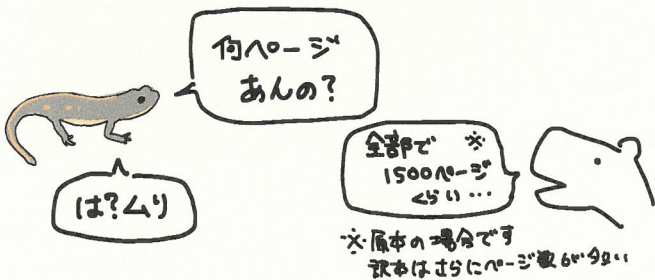 何ページ
あんの?
全部で※
1500ページ
くらい…
は?ムリ
※原本の場合です
訳本はさらにページ数が多い